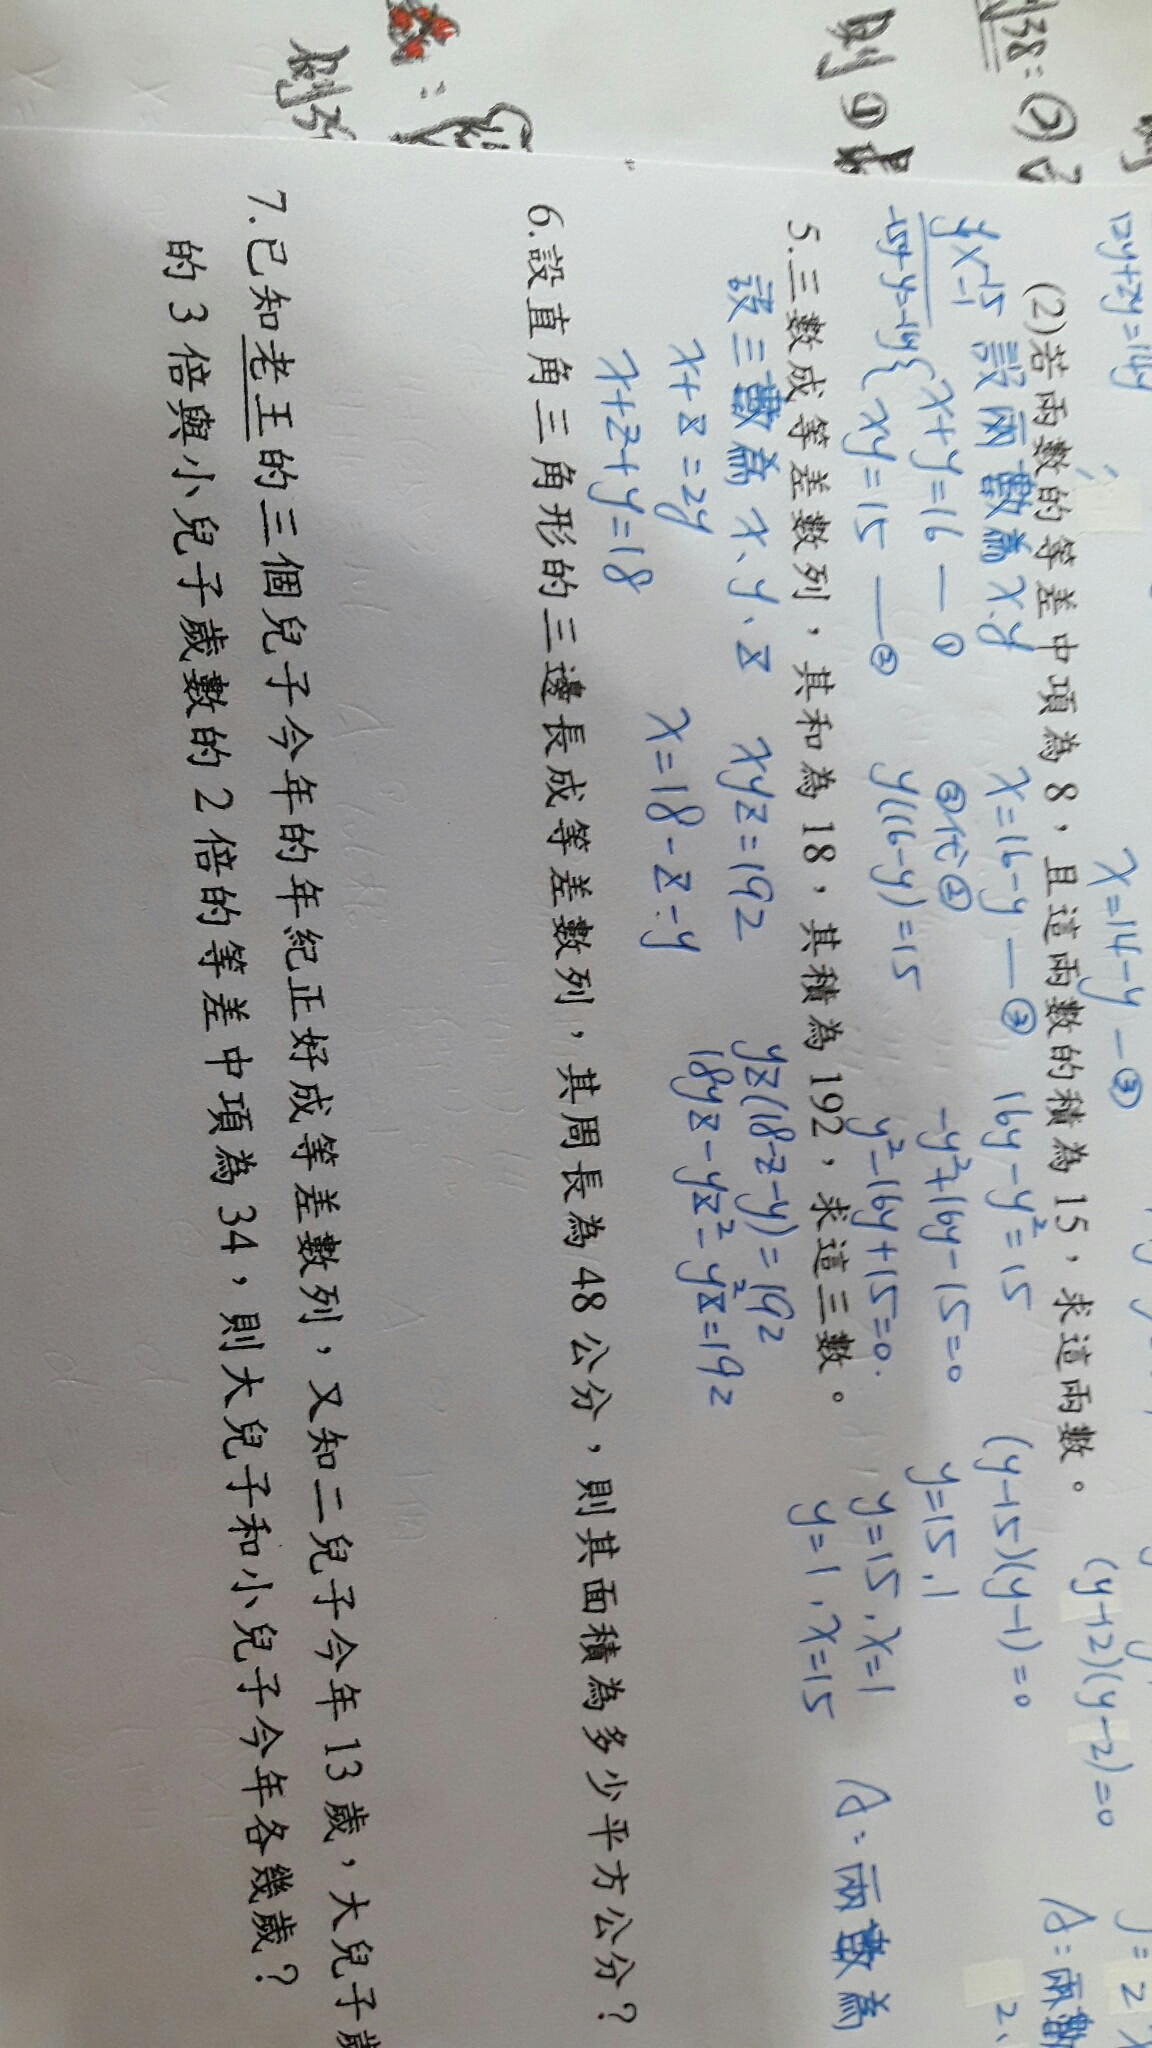 12y+2y=14y
x=14-y—③
(y-12)(y-2)=0
A:兩數
2、
(2)若兩數的等差中項為8，且這兩數的積為15，求這兩數。
設兩數為x.y
x+y=16—①
xy=15—②
x=16-y—③
③代②
y(16-y)=15
16y-y²=15
-y²+16y-15=0
y²-16y+15=0
(y-15)(y-1)=0
y=15.1
y=15,x=1
y=1,x=15
A:兩數為
y -15
y -1
-15y-y=-16y
5.三數成等差數列，其和為18，其積為192，求這三數。
設三數為x、y、z
x+z=2y
x+z+y=18
xyz=192
x=18-z-y
yz(18-z-y)=192
18yz-yz²-y²z=192
6.設直角三角形的三邊長成等差數列，其周長為48公分，則其面積為多少平方公分？
7.已知老王的三個兒子今年的年紀正好成等差數列，又知二兒子今年13歲，大兒子歲
的3倍與小兒子歲數的2倍的等差中項為34，則大兒子和小兒子今年各幾歲？